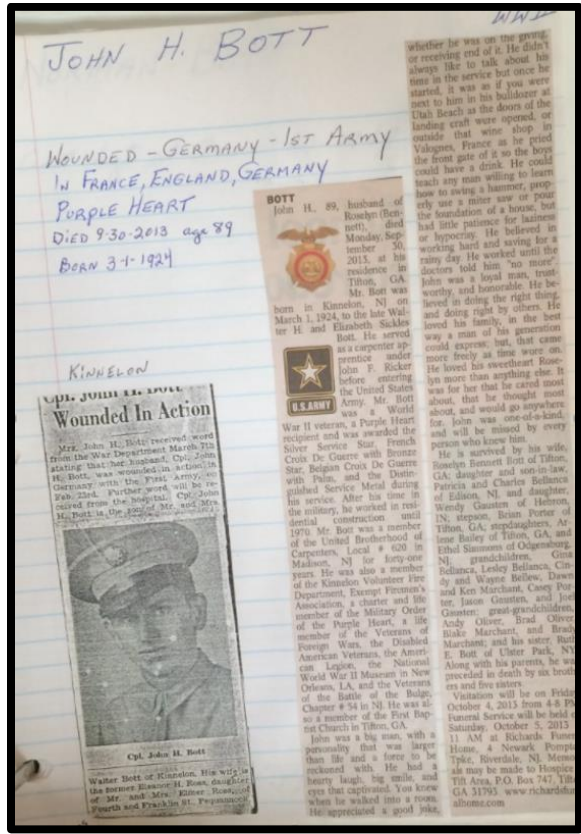 WWII
JOHN H. BOTT
WOUNDED - GERMANY - 1ST ARMY
IN FRANCE, ENGLAND, GERMANY
PURPLE HEART
DIED 9-30-2013 age 89
BORN 3-1-1924
KINNELON
Cpl. John H. Bott
Wounded In Action
Mrs. John H. Bott received word
from the War Department March 7th
stating that her husband, Cpl. John
H. Bott, was wounded in action in
Germany with the First Army, on
Feb. 23rd. Further word will be re-
ceived from the hospital. Cpl. John
H. Bott is the son of Mr. and Mrs.
Cpl. John H. Bott
Walter Bott of Kinnelon. His wife is
the former Eleanor H. Ross, daughter
of Mr. and Mrs. Elmer Ross, of
Fourth and Franklin St., Pequannock
BOTT
John H., 89, husband of
Roselyn (Ben-
nott), died
Monday, Sep-
tember 30,
2013, at his
residence in
Tifton, GA.
Mr. Bott was
born in Kinnelon, NJ on
March 1, 1924, to the late Wal-
ter H. and Elizabeth Sickles
Bott. He served
as a carpenter ap-
prentice under
John F. Ricker
before entering
the United States
Army. Mr. Bott
was a World
U.S.ARMY
War II veteran, a Purple Heart
recipient and was awarded the
Silver Service Star, French
Croix De Guerre with Bronze
Star, Belgian Croix De Guerre
with Palm, and the Distin-
guished Service Metal during
his service. After his time in
the military, he worked in resi-
dential construction until
1970. Mr. Bott was a member
of the United Brotherhood of
Carpenters, Local # 620 in
Madison, NJ for forty-one
years. He was also a member
of the Kinnelon Volunteer Fire
Department, Exempt Firemen's
Association, a charter and life
member of the Military Order
of the Purple Heart, a life
member of the Veterans of
Foreign Wars, the Disabled
American Veterans, the Ameri-
can Legion, the National
World War II Museum in New
Orleans, LA, and the Veterans
of the Battle of the Bulge,
Chapter # 54 in NJ. He was al-
so a member of the First Bap-
tist Church in Tifton, GA.
John was a big man, with a
personality that was larger
than life and a force to be
reckoned with. He had a
hearty laugh, big smile, and
eyes that captivated. You knew
when he walked into a room.
He appreciated a good joke,
whether he was on the giving,
or receiving end of it. He didn't
always like to talk about his
time in the service but once he
started, it was as if you were
next to him in his bulldozer at
Utah Beach as the doors of the
landing craft were opened, or
outside that wine shop in
Valognes, France as he pried
the front gate of it so the boys
could have a drink. He could
teach any man willing to learn
how to swing a hammer, prop-
erly use a miter saw or pour
the foundation of a house, but
had little patience for laziness
or hypocrisy. He believed in
working hard and saving for a
rainy day. He worked until the
doctors told him "no more".
John was a loyal man, trust-
worthy, and honorable. He be-
lieved in doing the right thing,
and doing right by others. He
loved his family, in the best
way a man of his generation
could express; but, that came
more freely as time wore on.
He loved his sweetheart Rose-
lyn more than anything else. It
was for her that he cared most
about, that he thought most
about, and would go anywhere
for. John was one-of-a-kind,
and will be missed by every
person who knew him.
He is survived by his wife,
Roselyn Bennett Bott of Tifton,
GA; daughter and son-in-law,
Patricia and Charles Bellanca
of Edison, NJ, and daughter,
Wendy Gausten of Henron,
IN; stepson, Brian Porter of
Tifton, GA; stepdaughters, Ar-
lene Bailey of Tifton, GA, and
Ethel Simmons of Ogdensburg,
NJ; grandchildren, Gina
Bellanca, Lesley Bellanca, Cin-
dy and Wayne Bellew, Dawn
and Ken Marchant, Casey Por-
ter, Jason Gausten, and Joel
Gausten; great-grandchildren,
Andy Oliver, Brad Oliver,
Blake Marchant, and Brady
Marchant; and his sister, Ruth
E. Bott of Ulster Park, NY.
Along with his parents, he was
preceded in death by six broth-
ers and five sisters.
Visitation will be on Friday
October 4, 2013 from 4-8 PM
Funeral Service will be held
Saturday, October 5, 2013
11 AM at Richards Funer
Home, 4 Newark Pompt
Tpke, Riverdale, NJ. Memo
als may be made to Hospice
Tift Area, P.O. Box 747, Tift
GA 31793. www.richardsfu
alhome.com